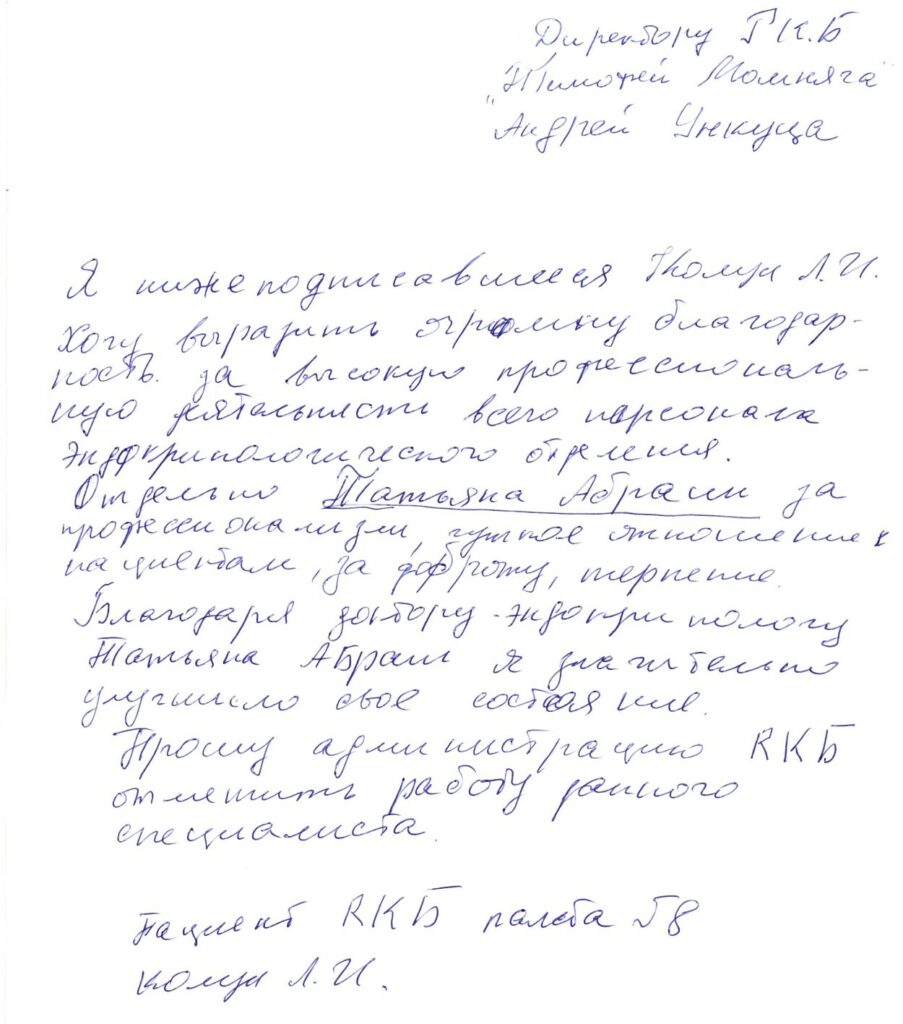 Директору РКБ
"Тимофей Мошняга"
Андрей Ункуца
Я нижеподписавшиеся Л.И.
Хочу выразить огромную благодар-
ность за высокую профессиональ-
ную деятельность всего персонала
Эндокринологического отделения.
Отдельно Татьяна Абраш за
профессионализм, чуткое отношение к
пациентам, за доброту, терпение.
Благодаря доктору-эндокринологу
Татьяна Абраш я значительно
улучшило свое состояние.
Прошу администрацию RКБ
отметить работу данного
специалиста.
Пациент RКБ палата
Л.И.